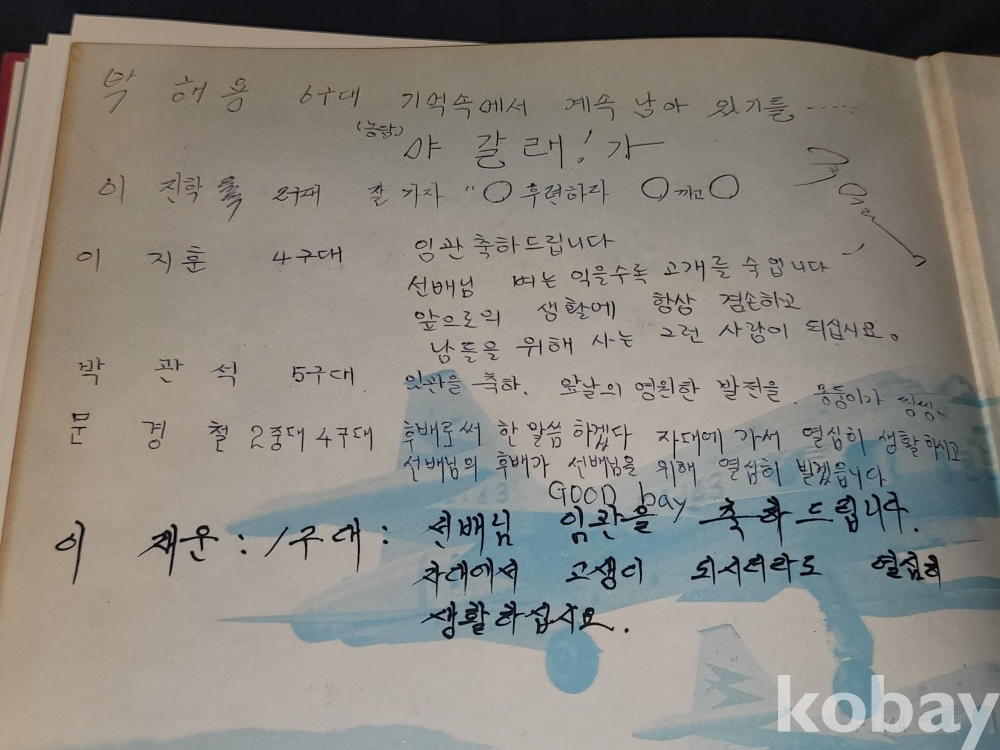 박 해용 6구대 기억속에서 계속 남아 있기를······
(농담) 야 갈래! 가
이 진학 2구대 잘 가자 "○ 훈련하라 ○까고○
이 지훈 4구대 임관 축하드립니다
선배님 벼는 익을수록 고개를 숙입니다
앞으로의 생활에 항상 겸손하고
남들을 위해 사는 그런 사람이 되십시요。
박 관석 5구대 임관을 축하. 앞날의 영원한 발전을.
문 경철 2중대 4구대 후배로써 한 말씀 하겠다 자대에 가서 열심히 생활하시고
선배님의 후배가 선배님을 위해 열심히 빌겠읍니다
GOOD bay
이 재운 : 1구대 : 선배님 임관을 축하드립니다.
자대에서 고생이 되시더라도 열심히
생활하십시요.
kobay